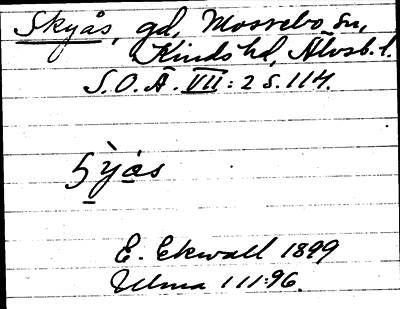 Skyås, gd, Mossebo sn,
Kinds hd, Älvsb. l.
S.O.Ä. VII: 2 s. 114.
E. Ekwall 1899
Ulma 111:96.